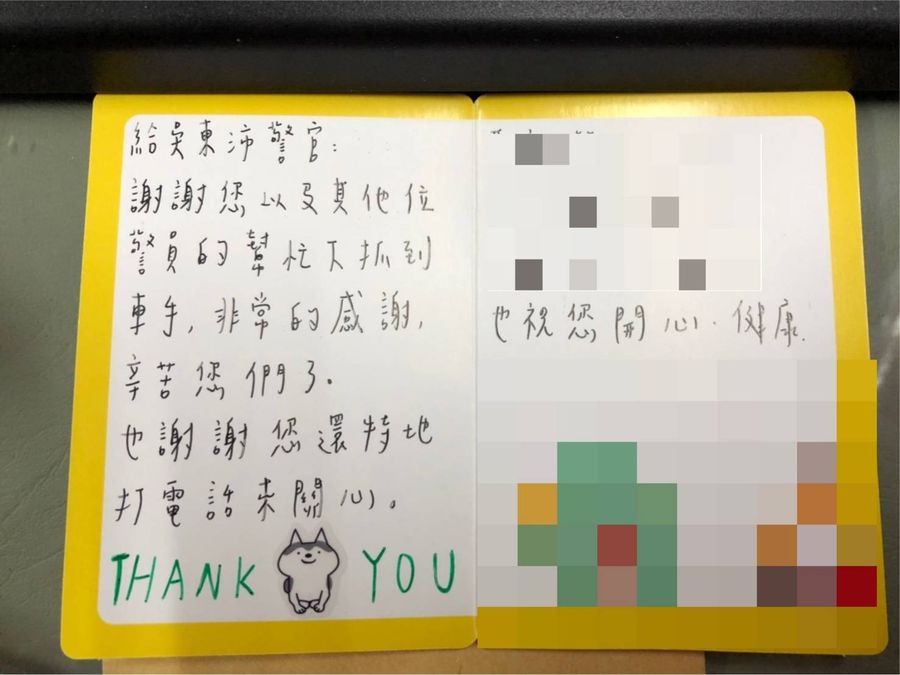 給吳東沛警官:
謝謝您以及其他位
警員的幫忙下抓到
車手,非常的感謝,
辛苦您們了。
也謝謝您還特地
打電話來關心。
THANK YOU
也祝您開心.健康.